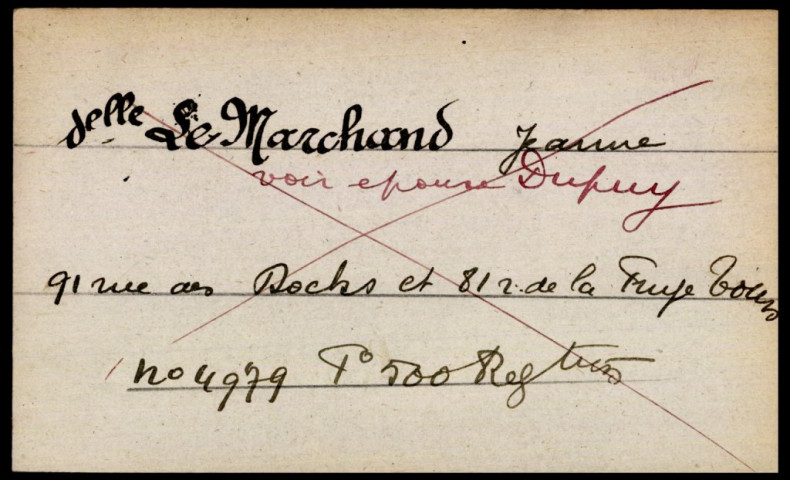 delle Le Marchand Jeanne
voir epouse Dupuy
91 rue des Docks et 81 r. de la Fuye Tours
no 4979 F° 500 Reg Tours